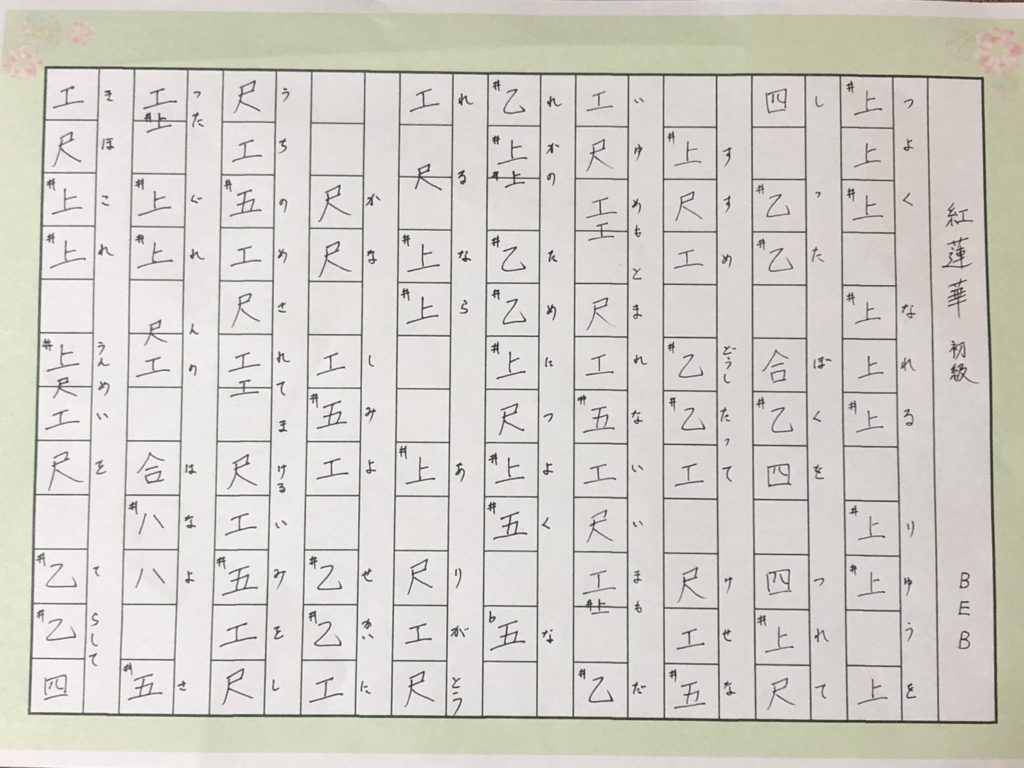 紅蓮華 初級 BEB
つよくなれるりゆうを
#上 上 #上 #上 上 #上 #上 #上 上
しったぼくをつれて
四 #乙 #乙 合 #乙 四 四 #上 尺
すすめどうしたってけせな
#上 尺 工 #乙 #乙 工 尺 工 #五
いゆめもとまれないいまもだ
工 尺 工 工 尺 工 #五 工 尺 工 #上 #乙
れかのためにつよくな
#乙 #上 #上 #乙 #乙 #上 尺 #上 #五 b五
れるならありがとう
工 尺 #上 #上 #上 尺 工 尺
かなしみよせかいに
尺 尺 工 #五 工 #乙 #乙 工
うちのめされてまけるいみをし
尺 工 #五 工 尺 工 工 尺 工 #五 工 尺
ったぐれんのはなよさ
工 #上 #上 #上 尺 工 合 #八 八 #五
きほこれうんめいをてらして
工 尺 #上 #上 #上 尺 工 尺 #乙 #乙 四